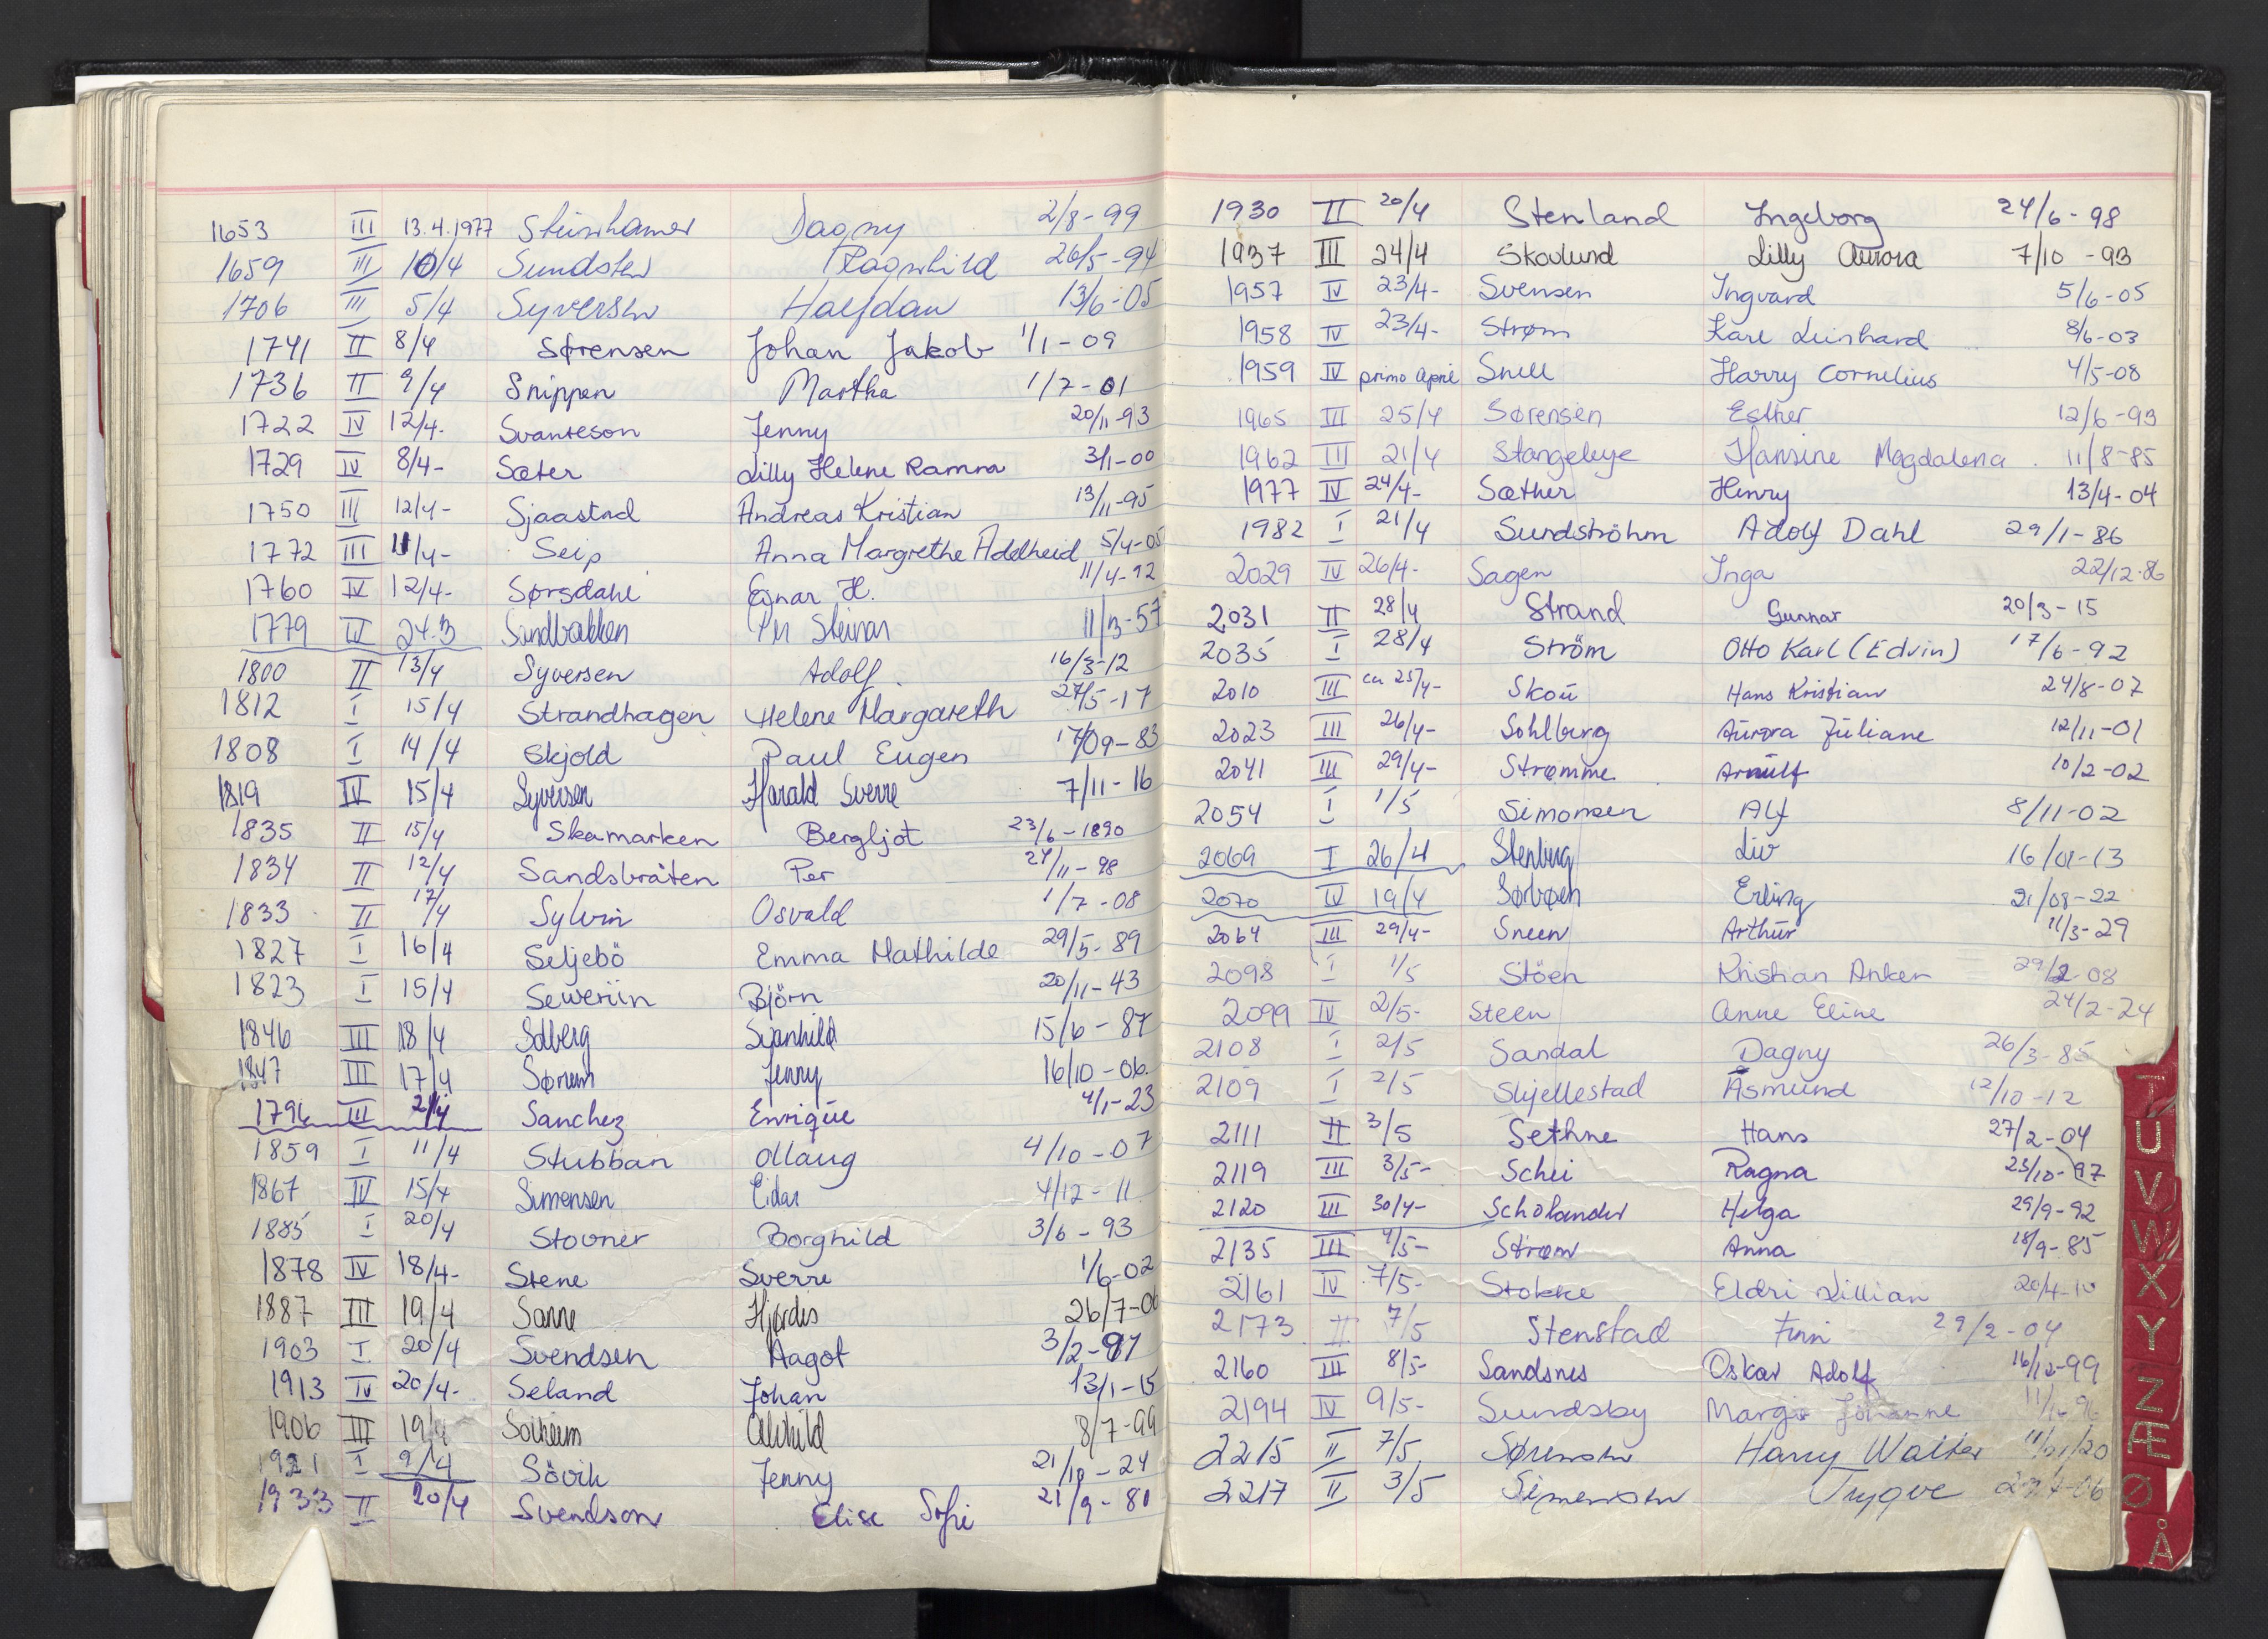 1653 III 13.4.1977 Steinhamer Dagny 2/8-99
1659 III 10/4 Sundsten Ragnhild 26/5-94
1706 III 5/4 Syversen Halfdan 13/6-05
1741 II 8/4 Sørensen Johan Jakob 1/1-09
1736 II 9/4 Snippen Martha 1/7-01
1722 IV 12/4- Svanteson Jenny 20/11-93
1729 IV 8/4- Sæter Lilly Helene Ramna 3/1-00
1750 III 12/4- Sjaastad Andreas Kristian 13/11-95
1772 III 11/4- Seip Anna Margrethe Adelheid 5/4-05
1760 IV 12/4- Sørsdahl Einar H. 11/4-92
1779 IV 24.3 Sandbakken Per Steinar 11/3-57
1800 II 13/4 Syversen Adolf. 16/3-12
1812 I 15/4 Strandhagen Helene Margareth 27/5-17
1808 I 14/4 Skjold Paul Eugen 17/09-83
1819 IV 15/4 Syversen Harald Sverre 7/11-16
1835 II 15/4 Skamarken Bergljot 23/6-1890
1834 II 12/4 Sandsbråten Per 24/11-98
1833 II 17/4 Sylvin Osvald 1/7-08
1827 I 16/4 Seljebö Emma Mathilde 29/5-89
1823 I 15/4 Seweriin Björn 20/11-43
1846 III 18/4 Solberg Svanhild 15/6-87
1847 III 17/4 Sørum Jenny 16/10-06
1796 III 2/4 Sanchez Enrique 4/1-23
1859 I 11/4 Stubban Ollaug 4/10-07
1867 IV 15/4 Simensen Eidar 4/12-11
1885 I 20/4 Stovner Borghild 3/6-93
1878 IV 18/4- Stene Sverre 1/6-02
1887 III 19/4 Sanne Hjørdis 26/7-06
1903 I 20/4 Svendsen Aagot 3/2-97
1913 IV 20/4- Seland Johan 13/1-15
1906 III 19/4 Solheim Alvhild 8/7-99
1921 I 9/4 Sövik Jenny 21/10-24
1933 II 20/4 Svendson Elise Sofie 21/9-81
1930 II 20/4 Stenland Ingeborg 24/6-98
1937 III 24/4 Skovlund Lilly Aurora 7/10-93
1957 IV 23/4- Svensen Ingvard 5/6-05
1958 IV 23/4- Strøm Karl Leinhard 8/6-03
1959 IV primo april Snell Harry Cornelius 4/5-08
1965 III 25/4 Sørensen Esther 12/6-93
1962 III 21/4 Stangebye Hansine Magdalena. 11/8-85
1977 IV 24/4- Sæther Henry 13/4-04
1982 I 21/4 Sundströhm Adolf Dahl 29/1-86
2029 IV 26/4- Sagen Inga 22/12-86
2031 II 28/4 Strand Gunnar 20/3-15
2035 I 28/4 Ström Otto Karl (Edvin) 17/6-92
2010 III ca 25/4- Skou Hans Kristian 24/8-07
2023 III 26/4- Sohlberg Aurora Juliane 12/11-01
2041 III 29/4- Strømme Arnulf 10/2-02
2054 I 1/5 Simonsen Alf 8/11-02
2069 I 26/4 Stenberg Liv 16/01-13
2070 IV 19/4 Sørbøen Erling 21/08-22
2064 III 29/4- Sneen Arthur 11/3-29
2098 I 1/5 Stöen Kristian Anker 29/2-08
2099 IV 2/5- Steen Anne Eline 24/2-24
2108 I 2/5 Sandal Dagny 26/3-85
2109 I 2/5 Skjellestad Åsmund 12/10-12
2111 II 3/5 Sethne Hans 27/2-04
2119 III 3/5- Schei Ragna 23/10-97
2120 III 30/4- Scholander Helga 29/9-92
2135 III 4/5- Strøm Anna 18/9-85
2161 IV 7/5- Stokke Eldri Lillian 20/4-10
2173 II 7/5 Stenstad Finn 29/2-04
2160 III 8/5- Sandsnes Oskar Adolf 16/12-99
2194 IV 9/5- Sundsby Margit Johanne
2215 II 7/5 Sørensen Harry Walter
2217 II 3/5 Simensen Trygve
T
U
V
W
X
Y
Z
Æ
Ø
Å